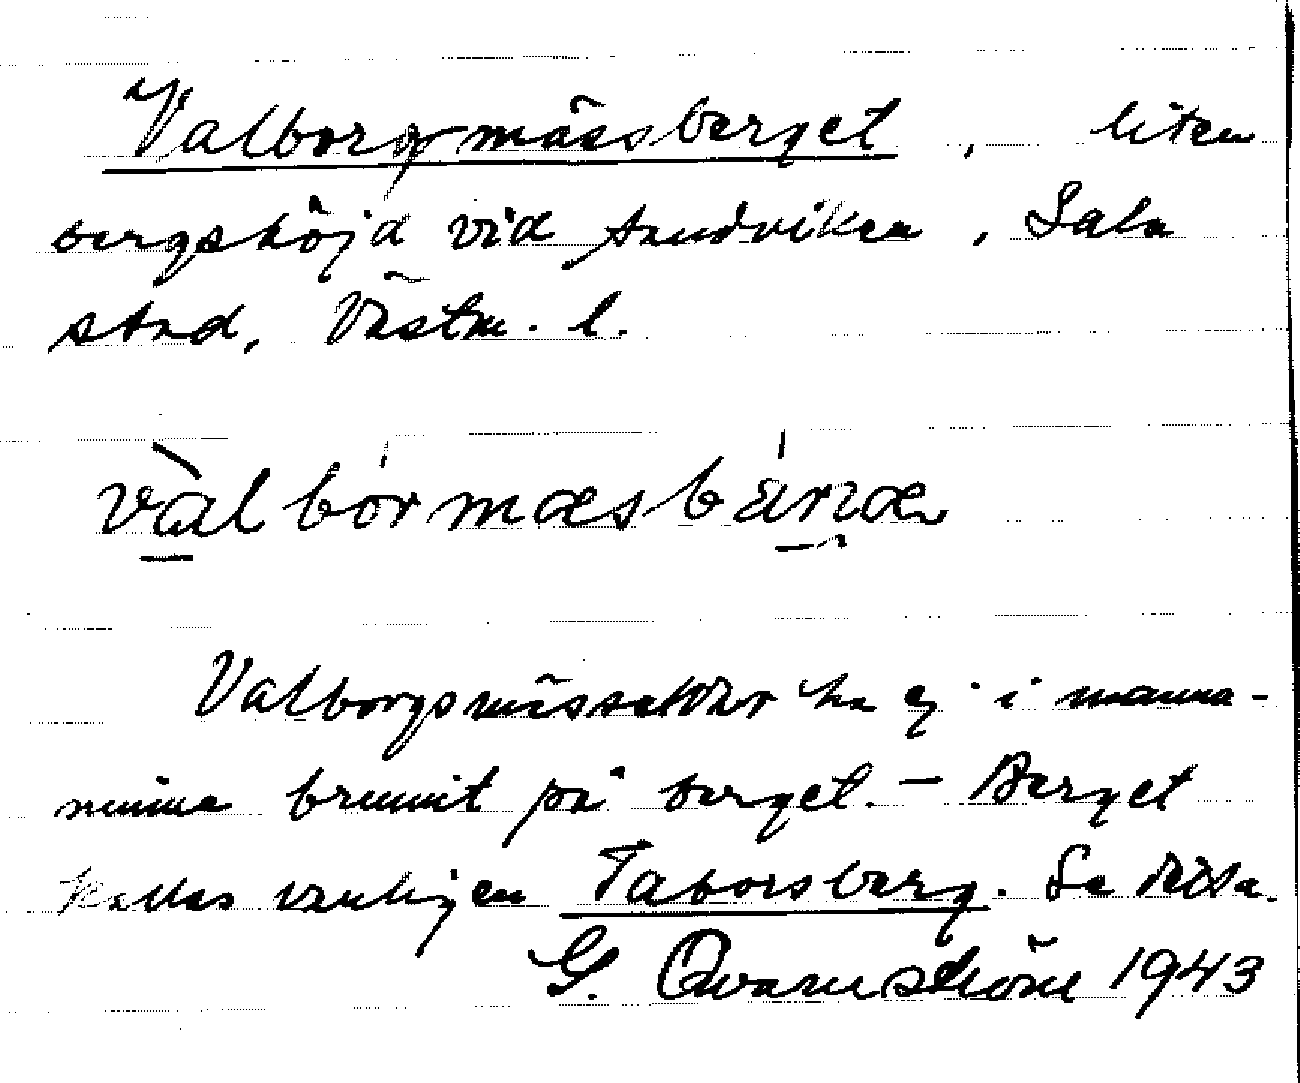 Valborgmässberget, liten
bergshöjd vid Sandviken, Sala
stad, Västm. l.
valbormæsbärɳæ
Valborgsmässeldar ha ej i manna-
minne brunnit på berget. – Berget
kallas vanligen Taborsberg. Se detta.
G. Qvarnström 1943